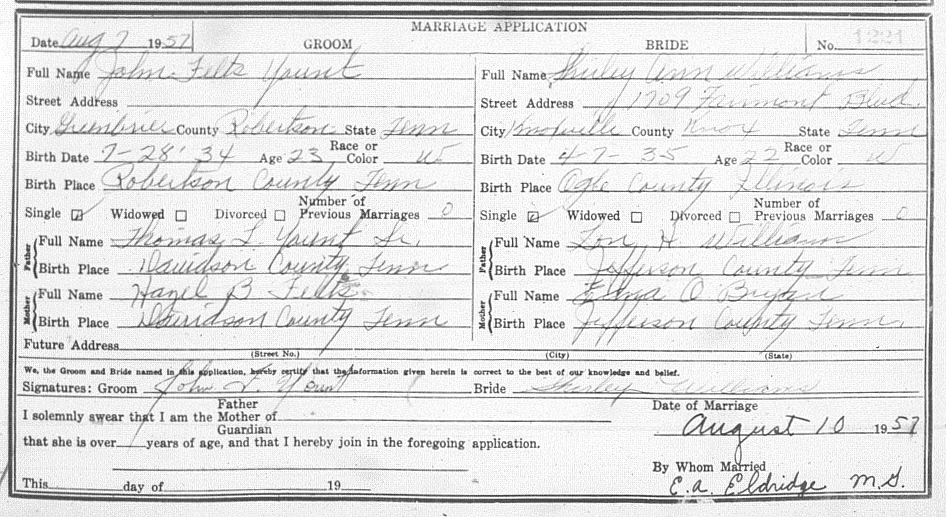 MARRIAGE APPLICATION
Date Aug 7 1957 GROOM BRIDE No. 1221
Full Name John Felts Yount Full Name Shirley Ann Williams
Street Address Street Address 1709 Fairmont Blvd.
City Greenbrier County Robertson State Tenn City Knoxville County Knox State Tenn
Birth Date 7-28-34 Age 23 Race or Color W Birth Date 4-7-35 Age 22 Race or Color W
Birth Place Robertson County Tenn Birth Place Ogle County Illinois
Single ☑ Widowed ☐ Divorced ☐ Number of Previous Marriages 0 Single ☑ Widowed ☐ Divorced ☐ Number of Previous Marriages 0
Father Full Name Thomas L. Yount Sr. Father Full Name Lon H. Williams
Birth Place Davidson County Tenn Birth Place Jefferson County Tenn
Mother Full Name Hazel B Felts Mother Full Name Edna O Bryan
Birth Place Davidson County Tenn Birth Place Jefferson County Tenn.
Future Address
(Street No.) (City) (State)
We, the Groom and Bride named in this application, hereby certify that the information given herein is correct to the best of our knowledge and belief.
Signatures: Groom John F. Yount Bride Shirley Williams
Father Date of Marriage
I solemnly swear that I am the Mother of
Guardian August 10 1957
that she is over years of age, and that I hereby join in the foregoing application.
By Whom Married
This day of 19 E.A. Eldridge M.G.